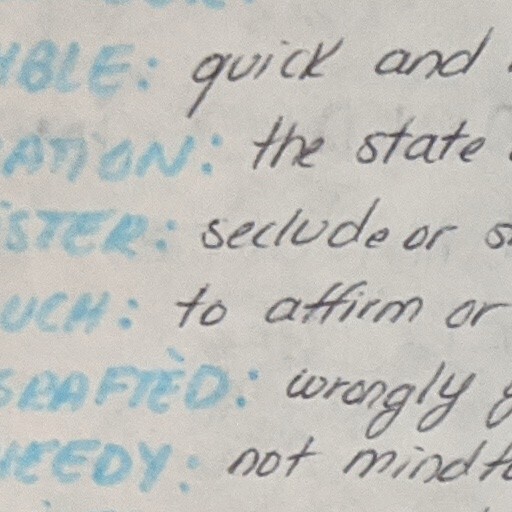 MBLE: quick and
ATION: the state
STER: seclude or
UCH: to affirm or
GRAFTED: wrongly
NEEDY: not mind